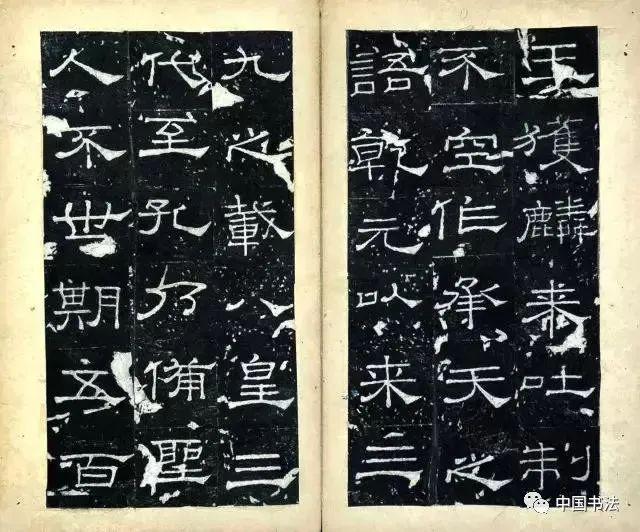 王獲麟来吐制
不空作承天之
語乾元以来三
九之載八皇三
代至孔乃備聖
人不世期五百
中国书法